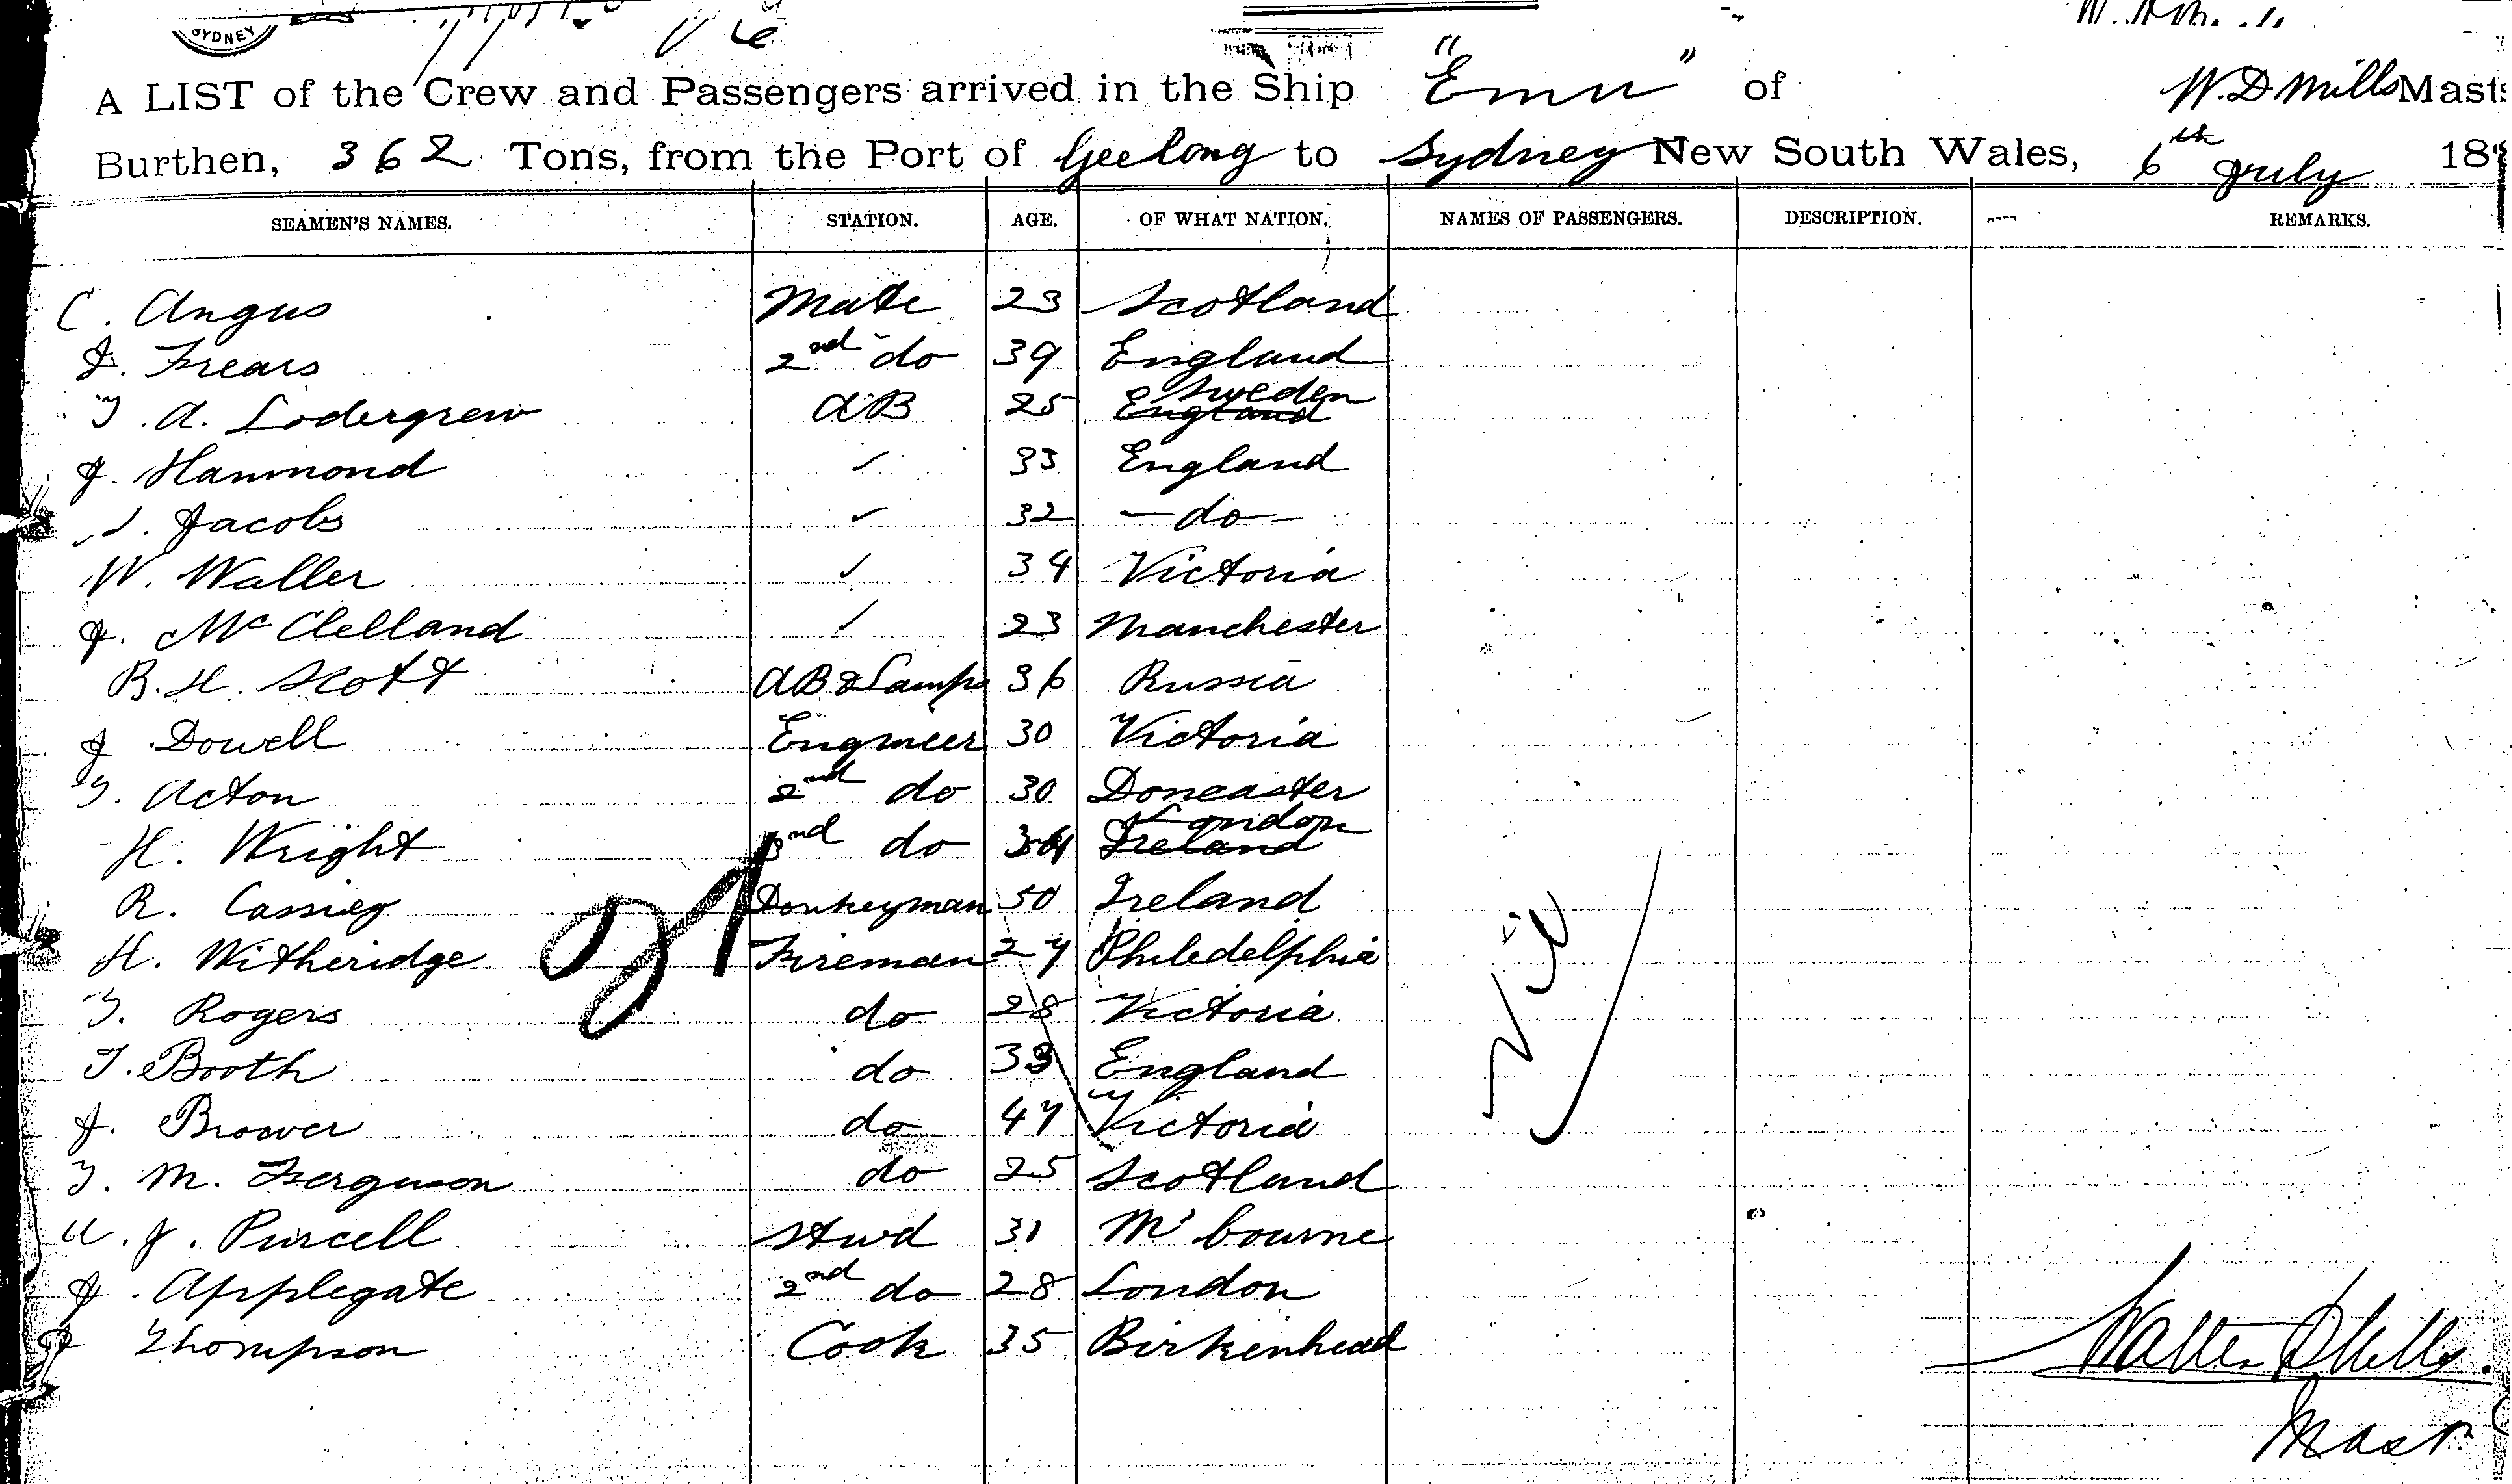 SYDNEY
A LIST of the Crew and Passengers arrived in the Ship "Emu" of W. D Mills Mast
Burthen, 362 Tons, from the Port of Geelong to Sydney New South Wales, 6th July 18
SEAMEN'S NAMES. STATION. AGE. OF WHAT NATION. NAMES OF PASSENGERS. DESCRIPTION. REMARKS.
C. Angus Mate 23 Scotland
J. Frears 2nd do 39 England
T. A. Lodergrew AB 25 Sweden England
J. Hammond ✓ 33 England
J. Jacobs ✓ 32 - do -
W. Waller ✓ 34 Victoria
J. McClelland ✓ 23 Manchester
B. H. Scott AB & Lamps 36 Russia
J Dowell Engineer 30 Victoria
T. Acton 2nd do 30 Doncaster
H. Wright 3nd do London Ireland
R. Donkeyman 50 Ireland
H. Witheridge Fireman 27 Philedelphia
T. Rogers do 28 Victoria
T. Booth do 33 England
J. Brower do 47 Victoria
T. M. Ferguson do 25 Scotland
A. J. Purcell Stwd 31 M'bourne
J. Applegate 2nd do 28 London
Thompson Cook 35 Birkenhead
Nil
21
Walter D Mills.
Mastr